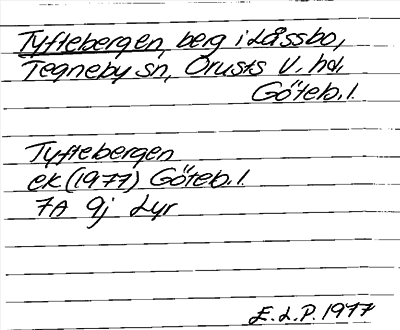 Tyftebergen, berg i Låssbo,
Tegneby sn, Orusts V. hd,
Göteb. l.
Tyftebergen
ek (1977) Göteb. l.
7A 9j Lyr
E. L. P. 1977